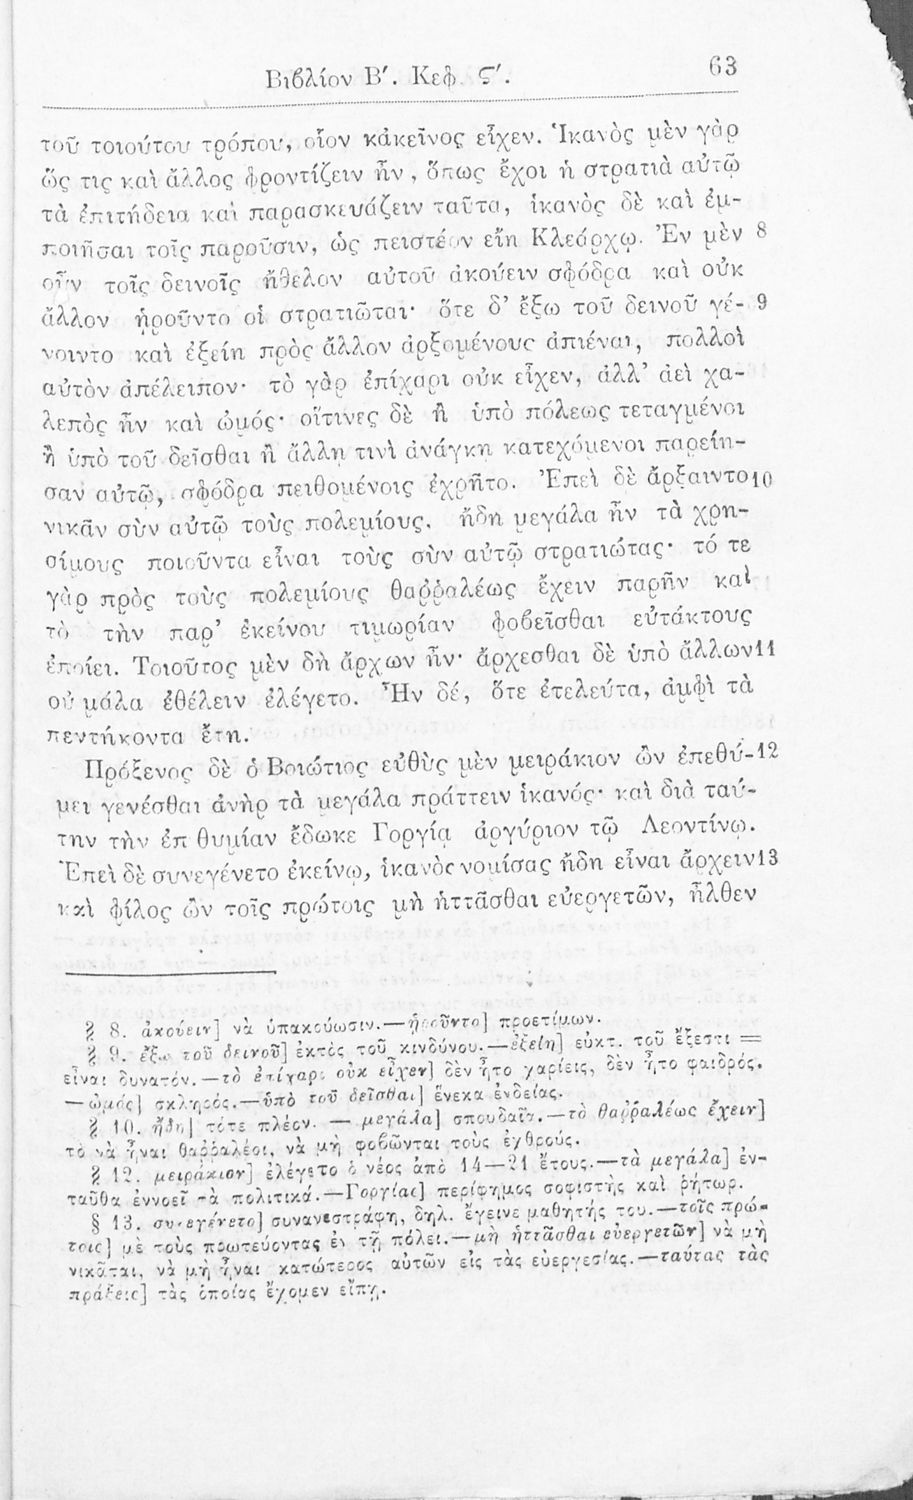 Βιβλίον Β′. Κεφ. Ϛ′.
63
τοῦ τοιούτου τρόπου, οἷον κἀκεῖνος εἶχεν. Ἱκανὸς μὲν γὰρ
ὥς τις καὶ ἄλλος φροντίζειν ἦν, ὅπως ἔχοι ἡ στρατιὰ αὐτῷ
τὰ ἐπιτήδεια καὶ παρασκευάζειν ταῦτα, ἱκανὸς δὲ καὶ ἐμ-
ποιῆσαι τοῖς παροῦσιν, ὡς πειστέον εἴη Κλεάρχῳ. Ἐν μὲν 8
οὖν τοῖς δεινοῖς ἤθελον αὐτοῦ ἀκούειν σφόδρα καὶ οὐκ
ἄλλον ᾑροῦντο οἱ στρατιῶται· ὅτε δ’ ἔξω τοῦ δεινοῦ γέ- 9
νοιντο καὶ ἐξείη πρὸς ἄλλον ἀρξομένους ἀπιέναι, πολλοὶ
αὐτὸν ἀπέλειπον· τὸ γὰρ ἐπίχαρι οὐκ εἶχεν, ἀλλ’ ἀεὶ χα-
λεπὸς ἦν καὶ ὠμός· οἵτινες δὲ ἢ ὑπὸ πόλεως τεταγμένοι
ἢ ὑπὸ τοῦ δεῖσθαι ἢ ἄλλῃ τινὶ ἀνάγκῃ κατεχόμενοι παρείη-
σαν αὐτῷ, σφόδρα πειθομένοις ἐχρῆτο. Ἐπεὶ δὲ ἄρξαιντο 10
νικᾶν σὺν αὐτῷ τοὺς πολεμίους, ἤδη μεγάλα ἦν τὰ χρη-
σίμους ποιοῦντα εἶναι τοὺς σὺν αὐτῷ στρατιώτας· τό τε
γὰρ πρὸς τοὺς πολεμίους θαῤῥαλέως ἔχειν παρῆν καὶ
τὸ τὴν παρ’ ἐκείνου τιμωρίαν φοβεῖσθαι εὐτάκτους
ἐποίει. Τοιοῦτος μὲν δὴ ἄρχων ἦν· ἄρχεσθαι δὲ ὑπὸ ἄλλων 11
οὐ μάλα ἐθέλειν ἐλέγετο. Ἦν δέ, ὅτε ἐτελεύτα, ἀμφὶ τὰ
πεντήκοντα ἔτη.
Πρόξενος δὲ ὁ Βοιώτιος εὐθὺς μὲν μειράκιον ὢν ἐπεθύ- 12
μει γενέσθαι ἀνὴρ τὰ μεγάλα πράττειν ἱκανός· καὶ διὰ ταύ-
την τὴν ἐπιθυμίαν ἔδωκε Γοργίᾳ ἀργύριον τῷ Λεοντίνῳ.
Ἐπεὶ δὲ συνεγένετο ἐκείνῳ, ἱκανὸς νομίσας ἤδη εἶναι ἄρχειν 13
καὶ φίλος ὢν τοῖς πρώτοις μὴ ἡττᾶσθαι εὐεργετῶν, ἦλθεν
§ 8. ἀκούειν] νὰ ὑπακούωσιν.—ᾑροῦντο] προετίμων.
§ 9. ἔξω τοῦ δεινοῦ] ἐκτὸς τοῦ κινδύνου.—ἐξείη] εὐκτ. τοῦ ἔξεστι =
εἶναι δυνατόν.—τὸ ἐπίχαρι οὐκ εἶχεν] δὲν ἦτο χαρίεις, δὲν ἦτο φαιδρός.
—ὠμός] σκληρός.—ὑπὸ τοῦ δεῖσθαι] ἕνεκα ἐνδείας.
§ 10. ἤδη] τότε πλέον. — μεγάλα] σπουδαῖα.—τὸ θαῤῥαλέως ἔχειν]
τὸ νὰ ἦναι θαῤῥαλέοι, νὰ μὴ φοβῶνται τοὺς ἐχθρούς.
§ 12. μειράκιον] ἐλέγετο ὁ νέος ἀπὸ 14—21 ἔτους.—τὰ μεγάλα] ἐν-
ταῦθα ἐννοεῖ τὰ πολιτικά.—Γοργίας] περίφημος σοφιστὴς καὶ ῥήτωρ.
§ 13. συνεγένετο] συνανεστράφη, δηλ. ἔγεινε μαθητής του.—τοῖς πρώ-
τοις] μὲ τοὺς πρωτεύοντας ἐν τῇ πόλει.—μὴ ἡττᾶσθαι εὐεργετῶν] νὰ μὴ
νικᾶται, νὰ μὴ ἦναι κατώτερος αὐτῶν εἰς τὰς εὐεργεσίας.—ταύτας τὰς
πράξεις] τὰς ὁποίας ἔχομεν εἴπῃ.